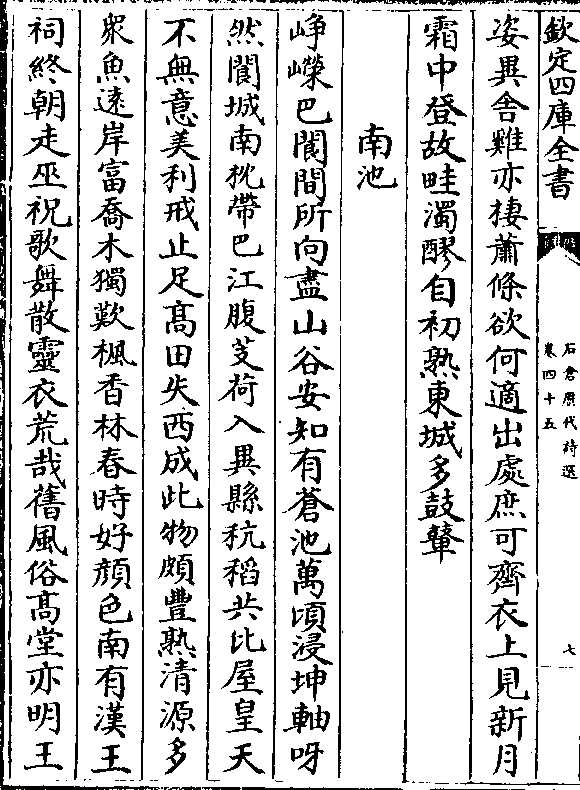 欽定四庫全書
石倉歷代詩選
卷四十五
七
姿異舍雞亦棲蕭條欲何適出處庶可齊衣上見新月
霜中登故畦濁醪自初熟東城多鼓鼙
南池
崢嶸巴閬間所向盡山谷安知有蒼池萬頃浸坤軸呀
然閬城南枕帶巴江腹芰荷入異縣秔稻共比屋皇天
不無意美利戒止足髙田失西成此物頗豐熟清源多
衆魚逺岸富喬木獨歎楓香林春時好顔色南有漢王
祠終朝走巫祝歌舞散靈衣荒哉舊風俗髙堂亦明王